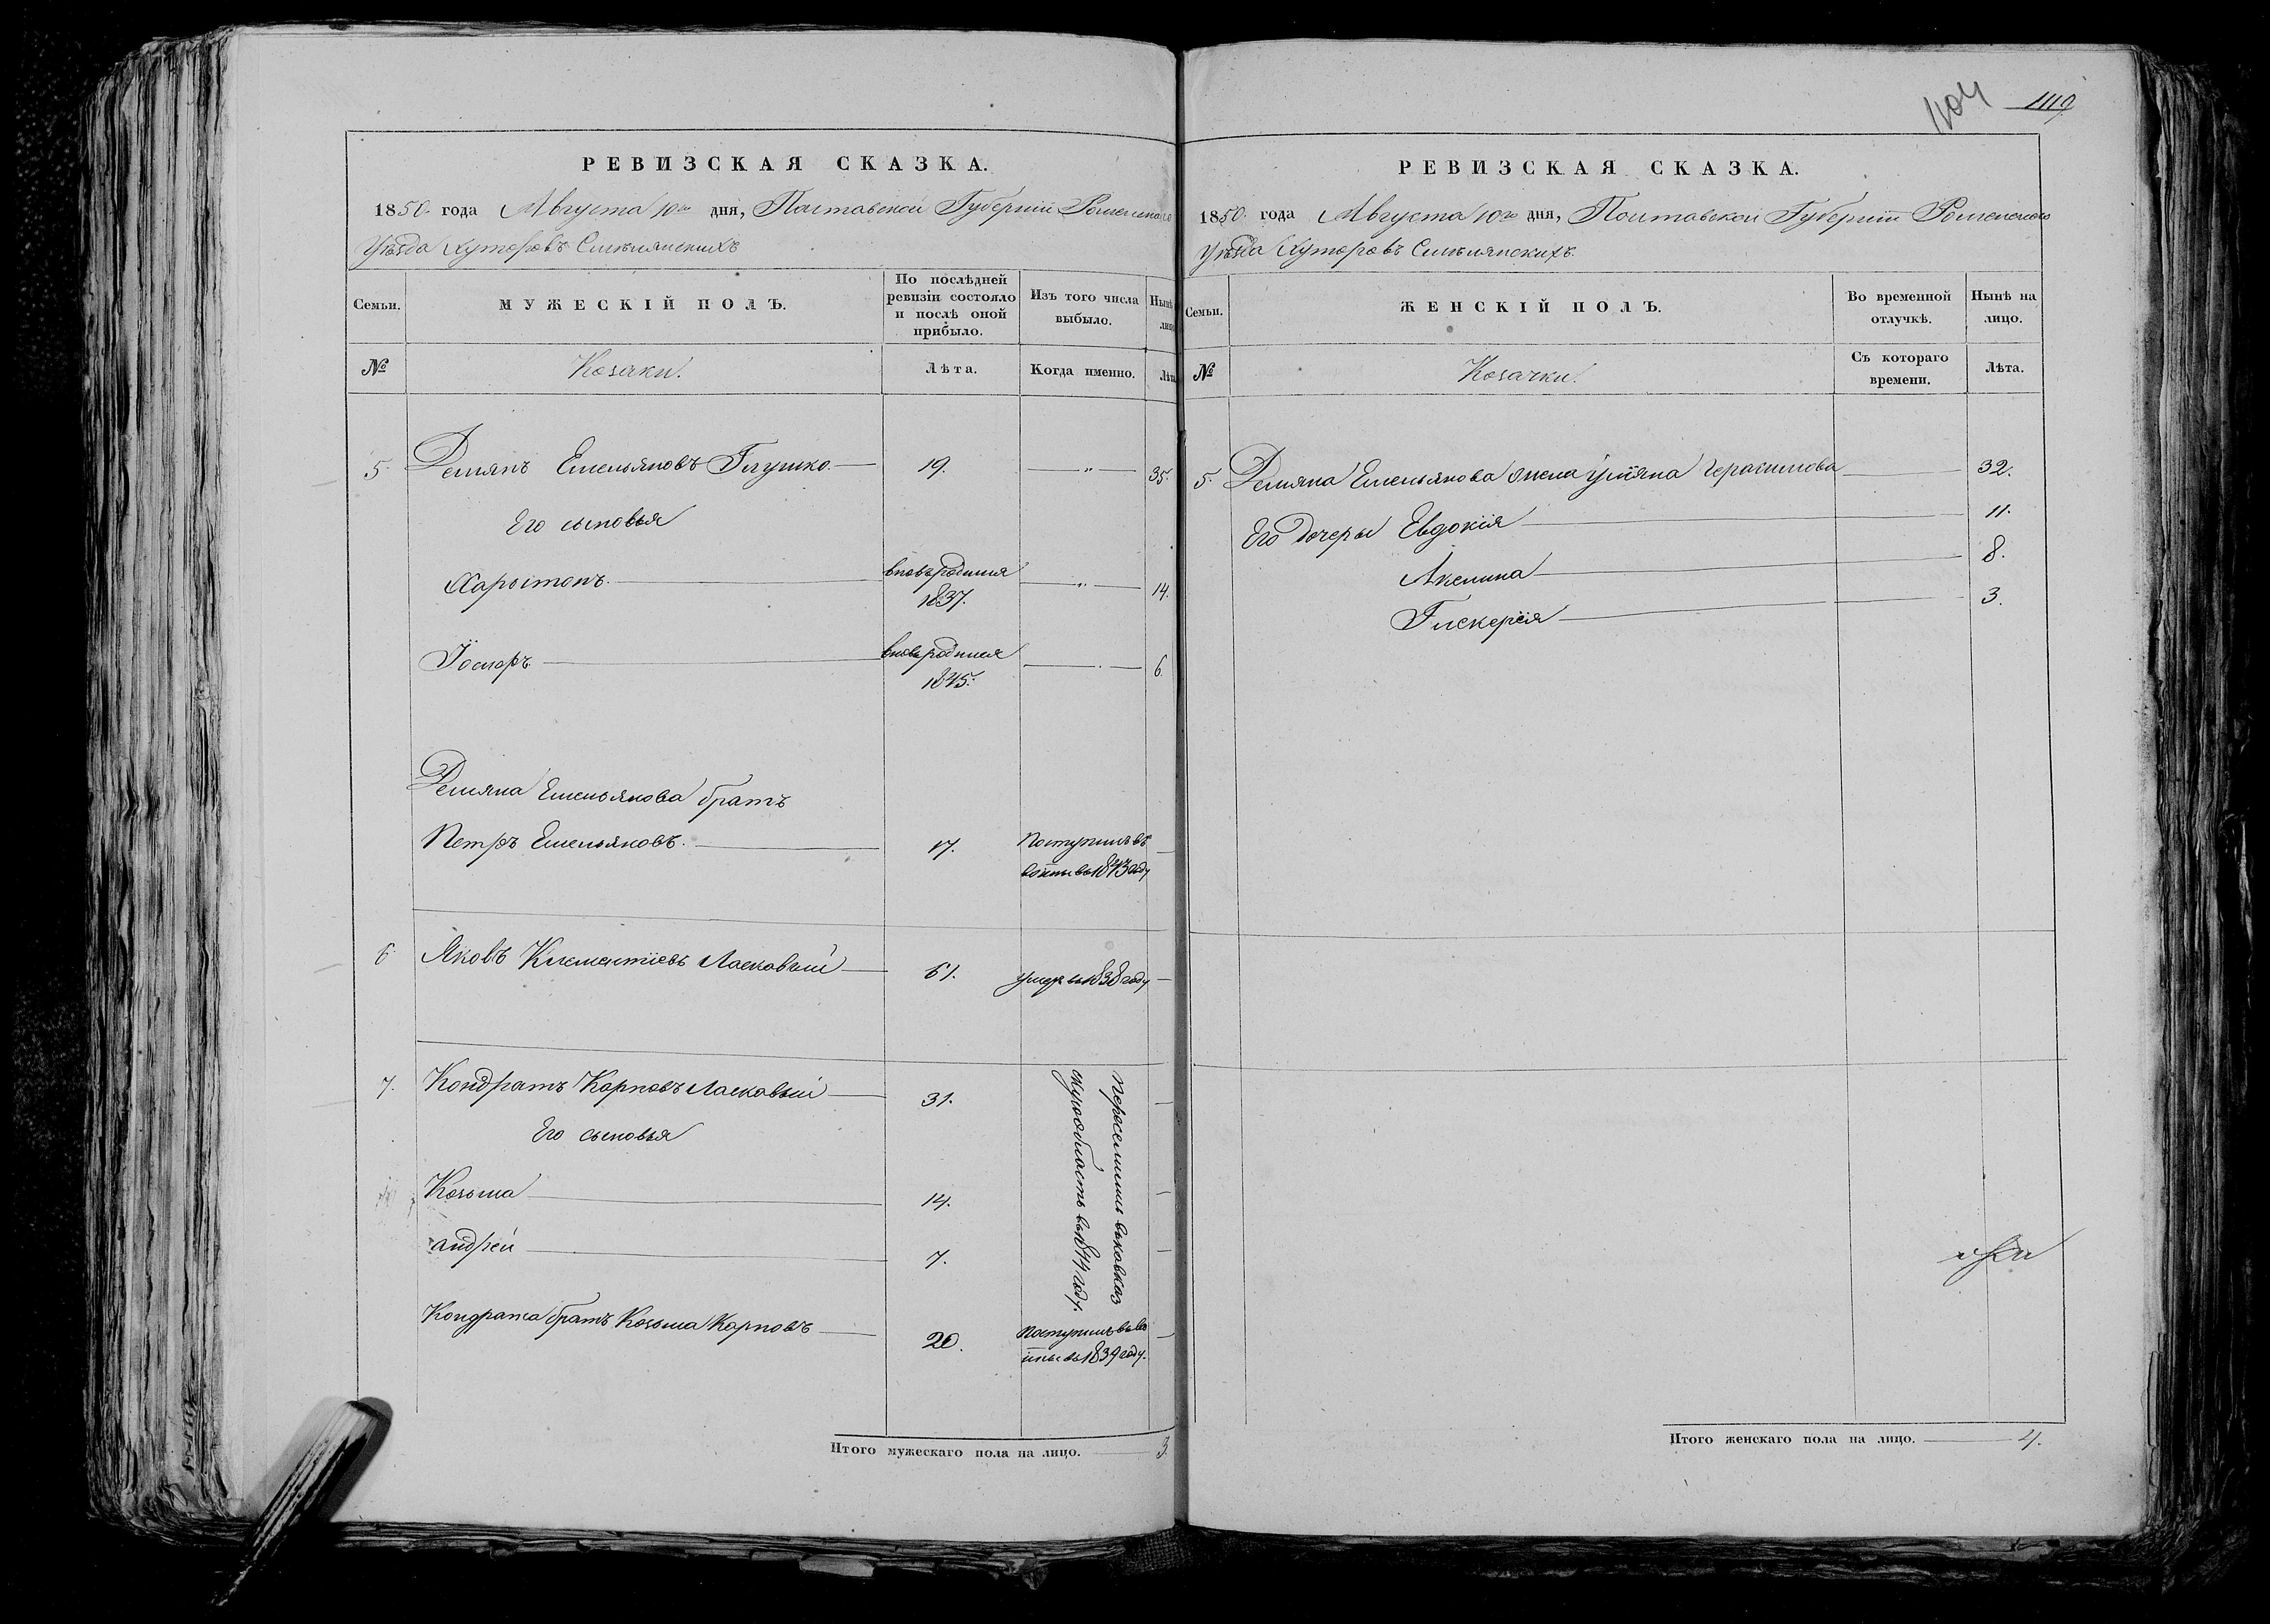 РЕВИЗСКАЯ СКАЗКА.
1850 года Августа 10го дня, Полтавской Губернiи Роменскаго
Уѣзда Хуторовъ Смѣлянскихъ
Семьи. МУЖЕСКІЙ ПОЛЪ. По послѣдней ревизіи состояло и послѣ оной прибыло. Изъ того числа выбыло. Нынѣ
№ Козаки. Лѣта. Когда именно. Лѣта
5 Демянъ Емельяновъ Глушко 19. „ 35.
Его сыновья
Харытонъ. вновьродился 1837. „ 14.
Іосифъ вновьродился 1845. 6.
Демяна Емельянова братъ
Петръ Емельяновъ. 17. Поступилъ въ воины въ 1843 году
6 Яковъ Клементіевъ Ласкавый 61. умеръ въ 1838 году
7. Кондратъ Карповъ Ласкавый 31. переселились въ кавказ скую область въ 1844 году.
Его сыновья
Козьма 14.
андрей 7.
Кондрата братъ Козьма Карповъ 20. Поступилъ въ во ины въ 1839 году.
Итого мужескаго пола на лицо. 3
104 1119
РЕВИЗСКАЯ СКАЗКА.
1850 года Августа 10го дня, Полтавской Губернiи Роменскаго
Уѣзда Хуторовъ Смѣлянскихъ.
Семьи. ЖЕНСКІЙ ПОЛЪ. Во временной отлучкѣ. Нынѣ на лицо.
№ Козачки. Съ котораго времени. Лѣта.
5. Демяна Емельянова жена Уліяна Герасимова 32.
Его дочеры Евдокія 11.
Акилина 8.
Гликерія 3.
Итого женскаго пола на лицо. 4.